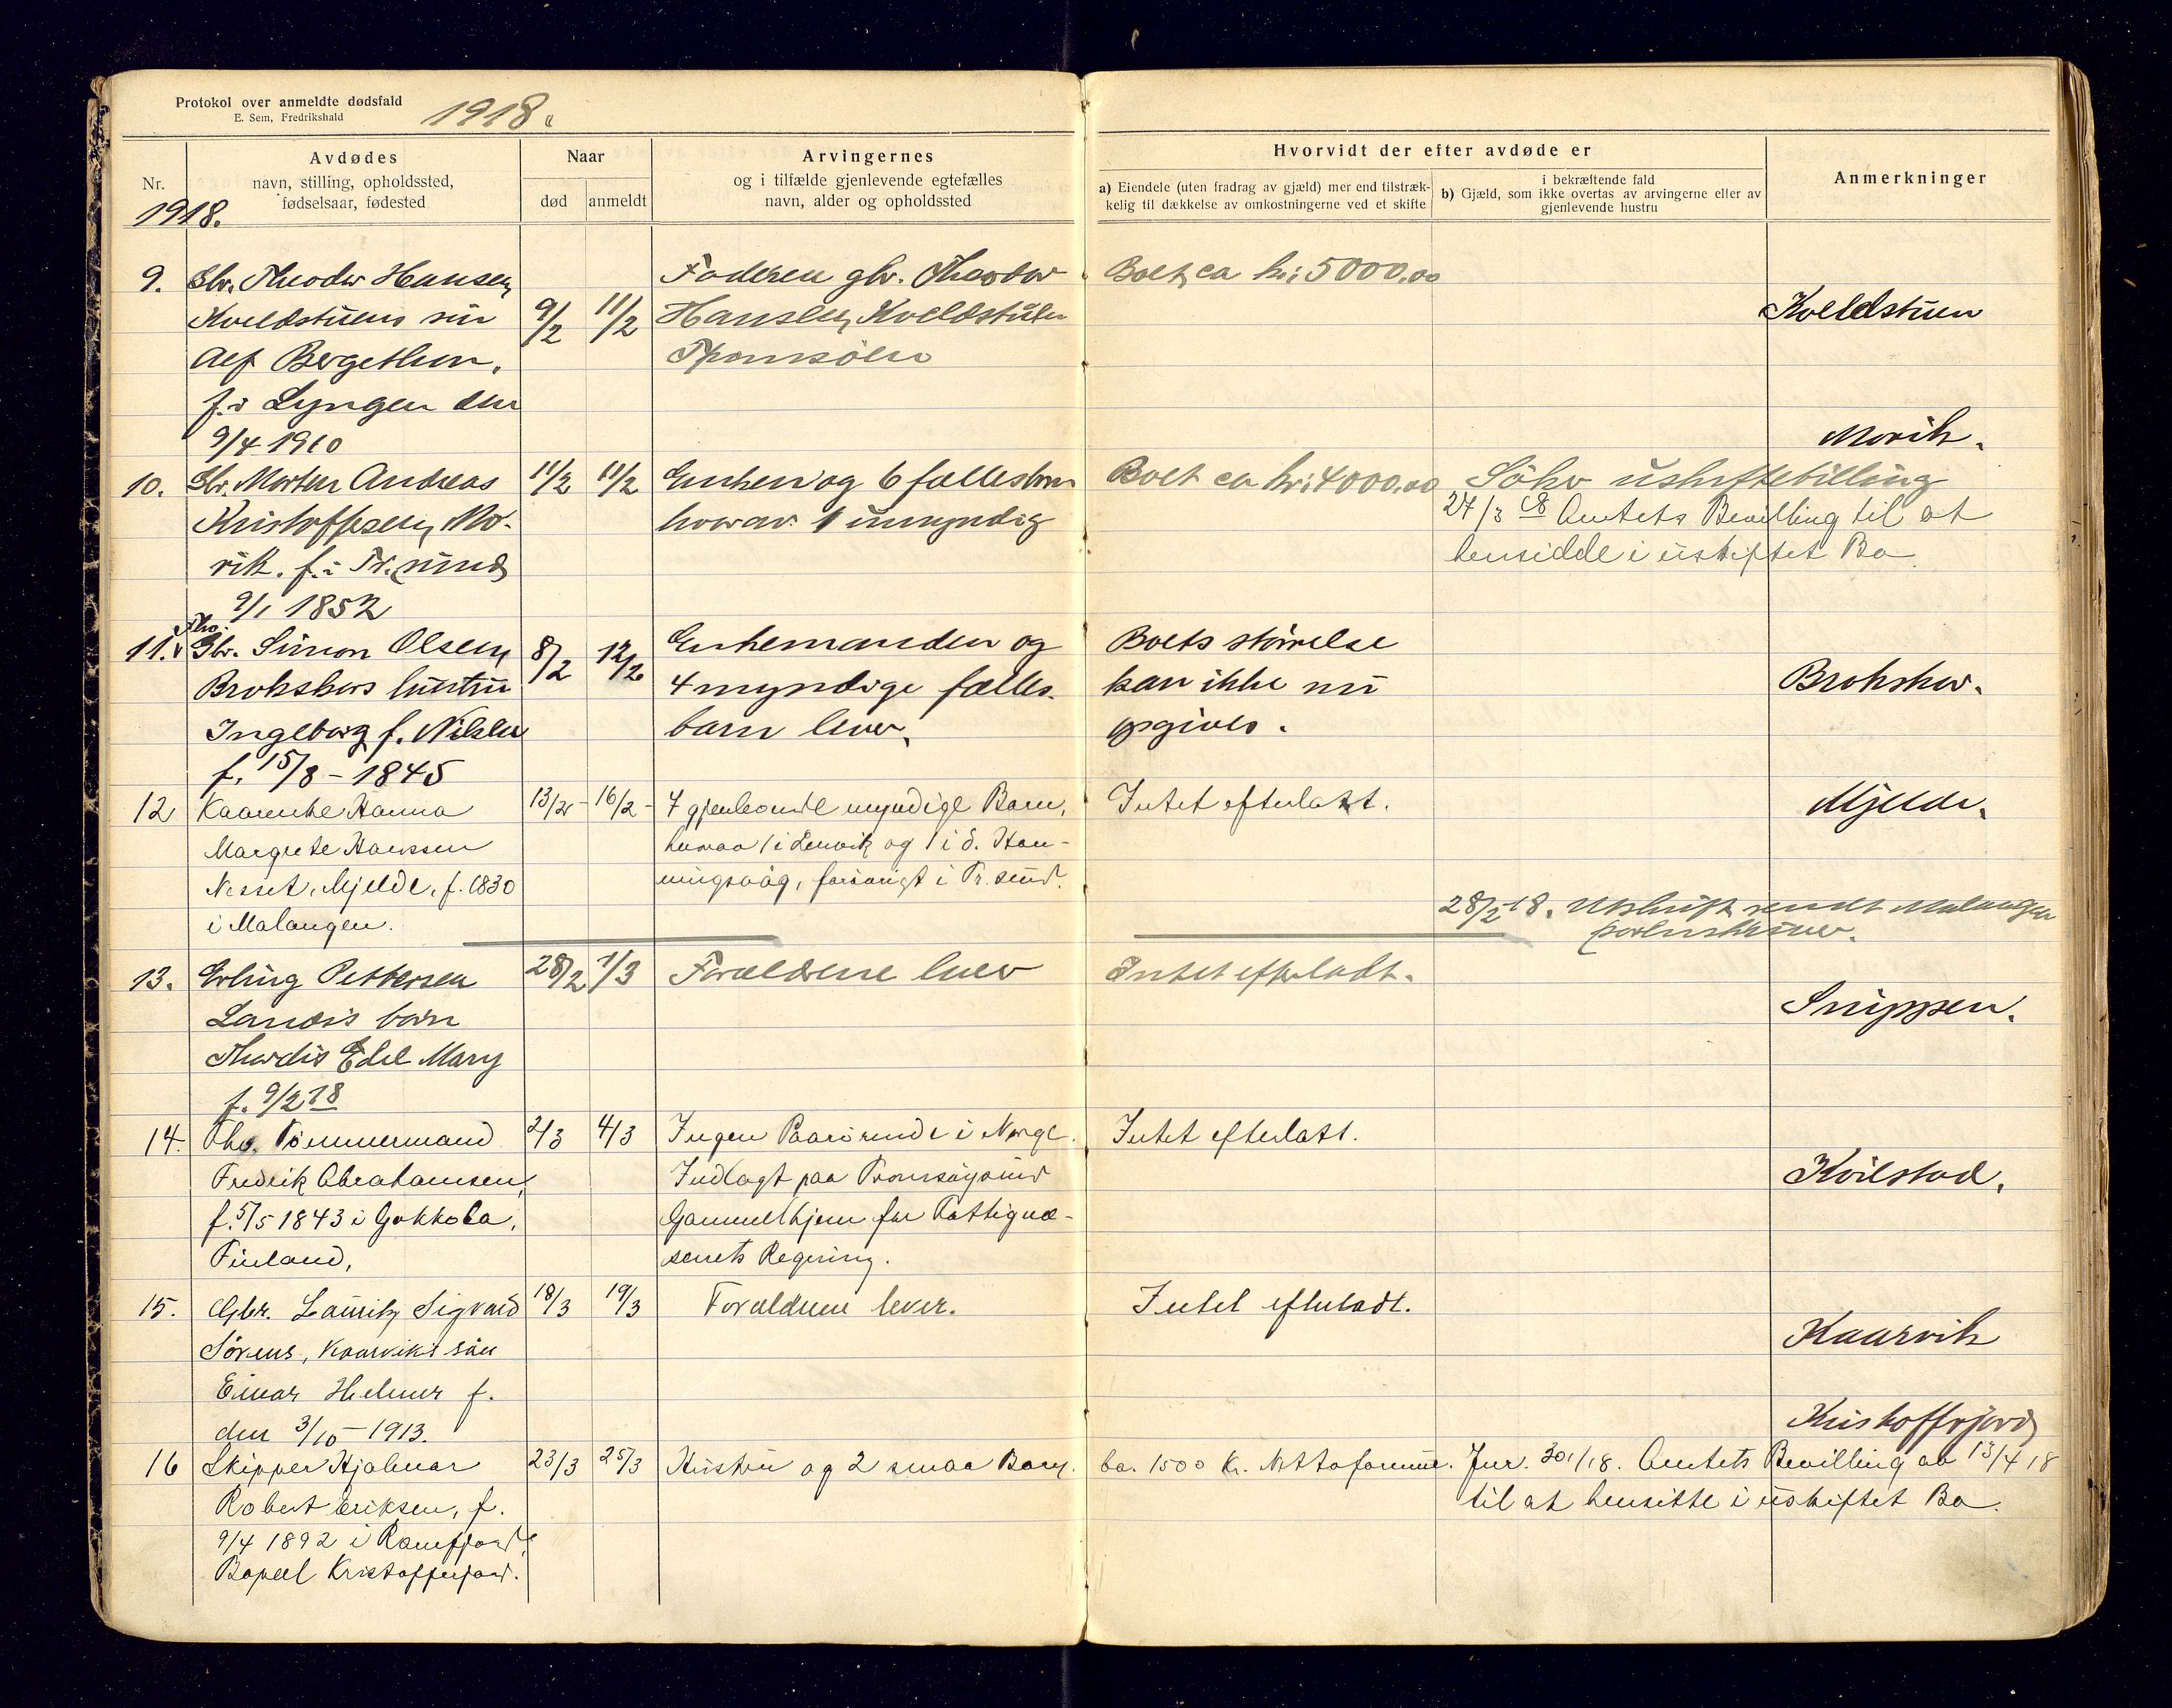 Protokol over anmeldte dødsfald
E. Sem, Fredrikshald
1918.
Nr.
Avdødes
navn, stilling, opholdssted,
fødselsaar, fødested
Naar
død
anmeldt
Arvingernes
og i tilfælde gjenlevende egtefælles
navn, alder og opholdssted
Hvorvidt der efter avdøde er
a) Eiendele (uten fradrag av gjæld) mer end tilstræk-
kelig til dækkelse av omkostningerne ved et skifte
i bekræftende fald
b) Gjæld, som ikke overtas av arvingerne eller av
gjenlevende hustru
Anmerkninger
1918.
9. Gbr. Theodor Hansen
Kveldstuens sün
Alf Bergethon,
f. i Lyngen den
9/4 1910
9/2 11/2
Faderen gbr. Theodor
Hansen, Kveldstuen
Tromsöen
Boet, ca kr: 5000.00
Kveldstuen
10. Gbr. Morten Andreas
Kristoffersen, Mo-
rik. f. i Tr.sund
9/1 1852
11/2 11/2
Enken og 6 fællesbarn
hvorav 1 umyndig
Boet ca kr: 4000.00
Söker uskiftebilling
27/3 18 Amtets Bevilling til at
hensidde i uskiftet Bo.
Morik.
11. Fho.
Gbr. Simon Olsen
Brokskars hustru
Ingeborg f. Nilsen
f. 15/8 - 1845
8/2 12/2
Enkemanden og
4 myndige fælles-
barn lever.
Boets störrelse
kan ikke nu
opgives.
Brokskar.
12 Kaarenke Hanna
Margrete Hanssen
Nesset, Mjelde, f. 1830
i Malangen.
13/2 - 16/2 -
7 gjenlevende myndige Barn,
hvoraa 1 i Lenvik og 1 i S. Hon-
ningsvåg, forövrigt i Tr.sund.
Intet efterlatt.
28/2 18. Utskrift sendt Malangen
Mjelde.
13. Erling Pettersen
Landis barn
Thordis Edel Mary
f. 9/2 18
28/2 1/3
Forældrene lever
Intet efterladt.
Snippen.
14. Fho. Tömmermand
Fredrik Abrahamsen,
f. 5/5 1843 i Gakkola,
Finland,
2/3 4/3
Ingen Paarörende i Norge.
Indlagt paa Tromsöysund
Gammelhjem for Fattigvæ-
senets Regning.
Intet efterlatt.
Kvilstad.
15. Gbr. Lauritz Sigvard
Sörens, Kaarviks sön
Einar Helmer f.
den 3/10 - 1913.
18/3 19/3
Forældrene lever.
Intet efterladt.
Kaarvik
16 Skipper Hjalmar
Robert Eriksen, f.
9/4 1892 i Ramfjord,
Bopæl Kristofferjord.
23/3 25/3
Hustru og 2 smaa Barn.
ca. 1500 Kr. Nettoformue.
Jnr. 301/18. Amtets Bevilling av 13/4 18
til at hensitte i uskiftet Bo.
Kristofferjord